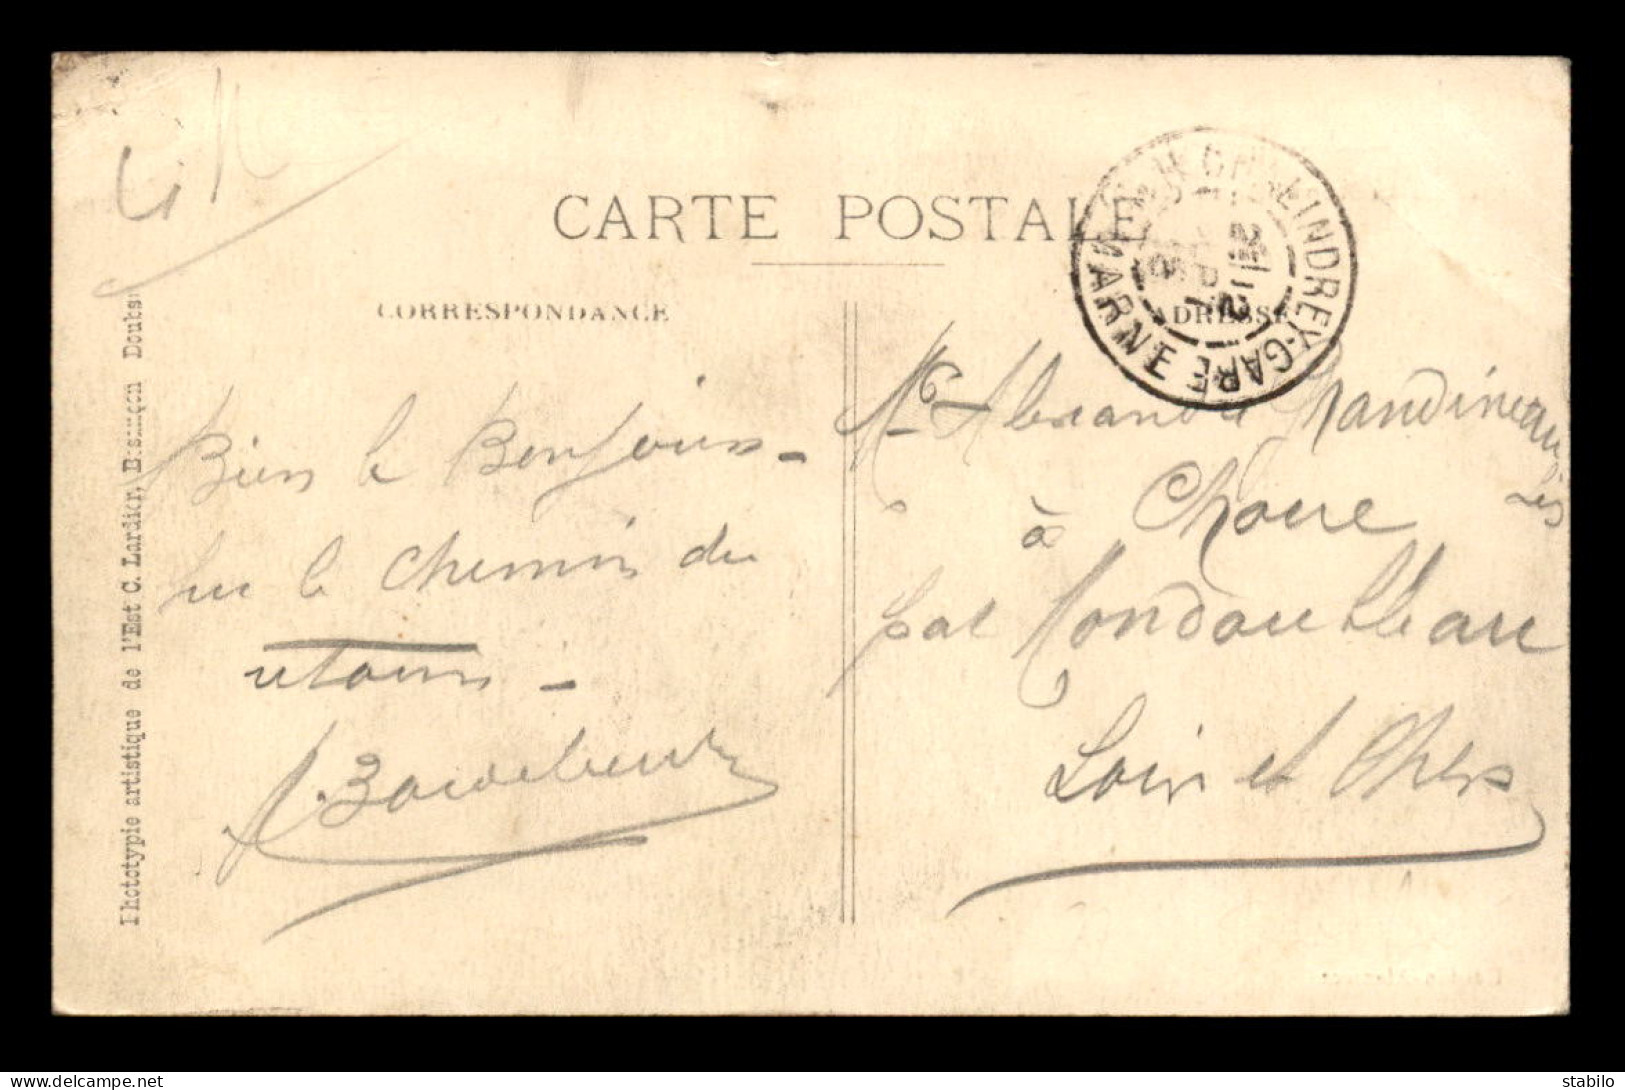 CARTE POSTALE
CORRESPONDANCE
ADRESSE
CHALINDREY-GARE
MARNE
Bien le Bonjour -
sur le chemin du
retour -
Mr Alexandre
à Choue
par Mondoubleau
Loir et Cher
Phototypie artistique de l'Est C. Lardier, Besançon Doubs
delcampe.net
stabilo